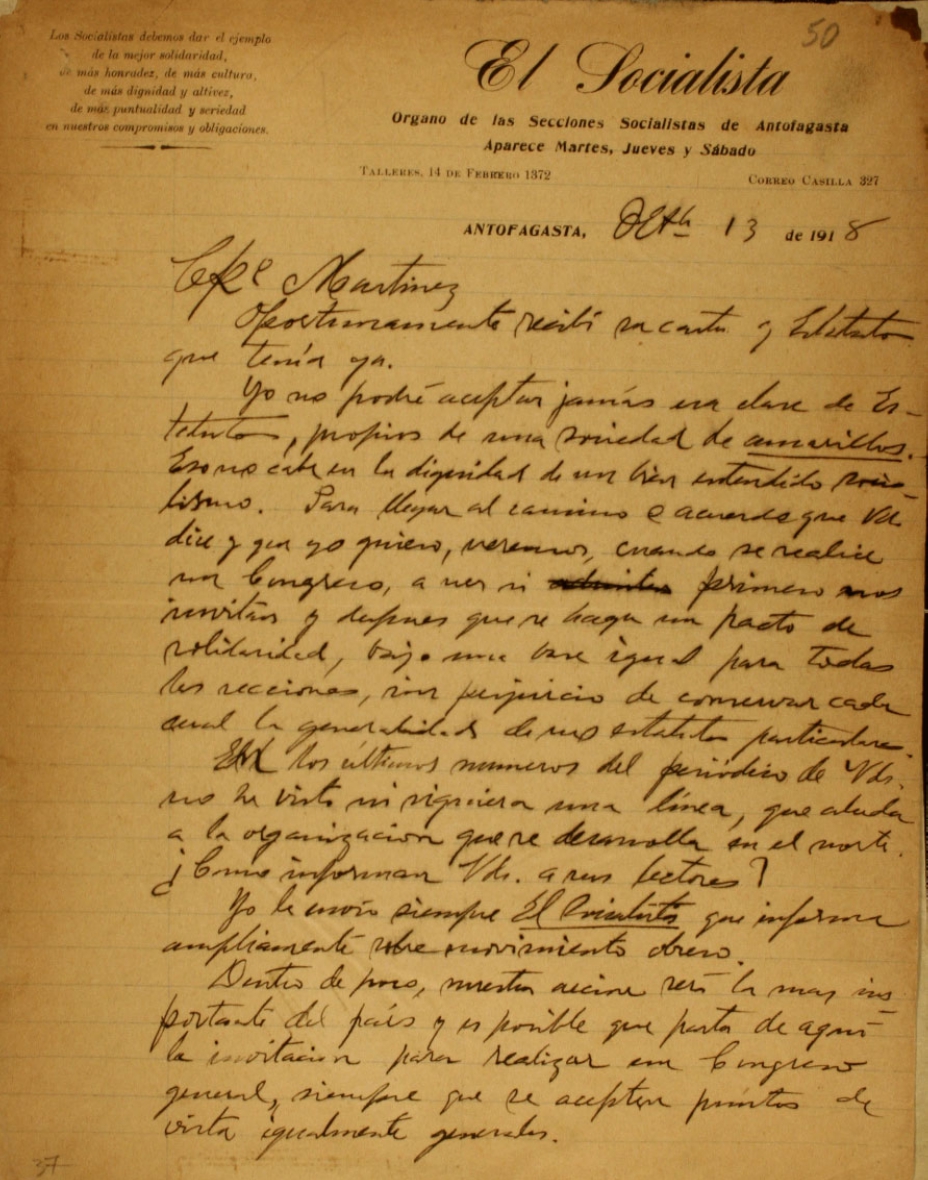 50
Los Socialistas debemos dar el ejemplo
de la mejor solidaridad,
de más honradez, de más cultura,
de más dignidad y altivez,
de más puntualidad y seriedad
en nuestros compromisos y obligaciones.
El Socialista
Organo de las Secciones Socialistas de Antofagasta
Aparece Martes, Jueves y Sábado
Talleres, 14 de Febrero 1372
Correo Casilla 327
ANTOFAGASTA, 13 de 1918
Martinez
Oportunamente recibí su carta y Estatutos
que tenía ya.
Yo no podré aceptar jamás esa clase de Es-
tatutos, propios de una sociedad de amarillos.
Eso no cabe en la dignidad de un bien entendido socia-
lismo. Para llegar al camino o acuerdo que Vd.
dice y que yo quiero, veremos, cuando se realice
un Congreso, a ver si primero nos
invitan y despues que se haga un pacto de
solidaridad, bajo una base igual para todas
las secciones, sin perjuicio de conservar cada
cual la generalidad de sus estatutos particulares.
En los últimos numeros del periódico de Vds.
no he visto ni siquiera una línea, que aluda
a la organizacion que se desarrolla en el norte.
¿Como informan Vds. a sus lectores?
Yo le envío siempre El Socialista que informa
ampliamente sobre movimiento obrero.
Dentro de poco, nuestra será la mas im
portante del país y es posible que parta de aquí
la invitacion para realizar un Congreso
general, siempre que se acepten puntos de
vista igualmente generales.
37